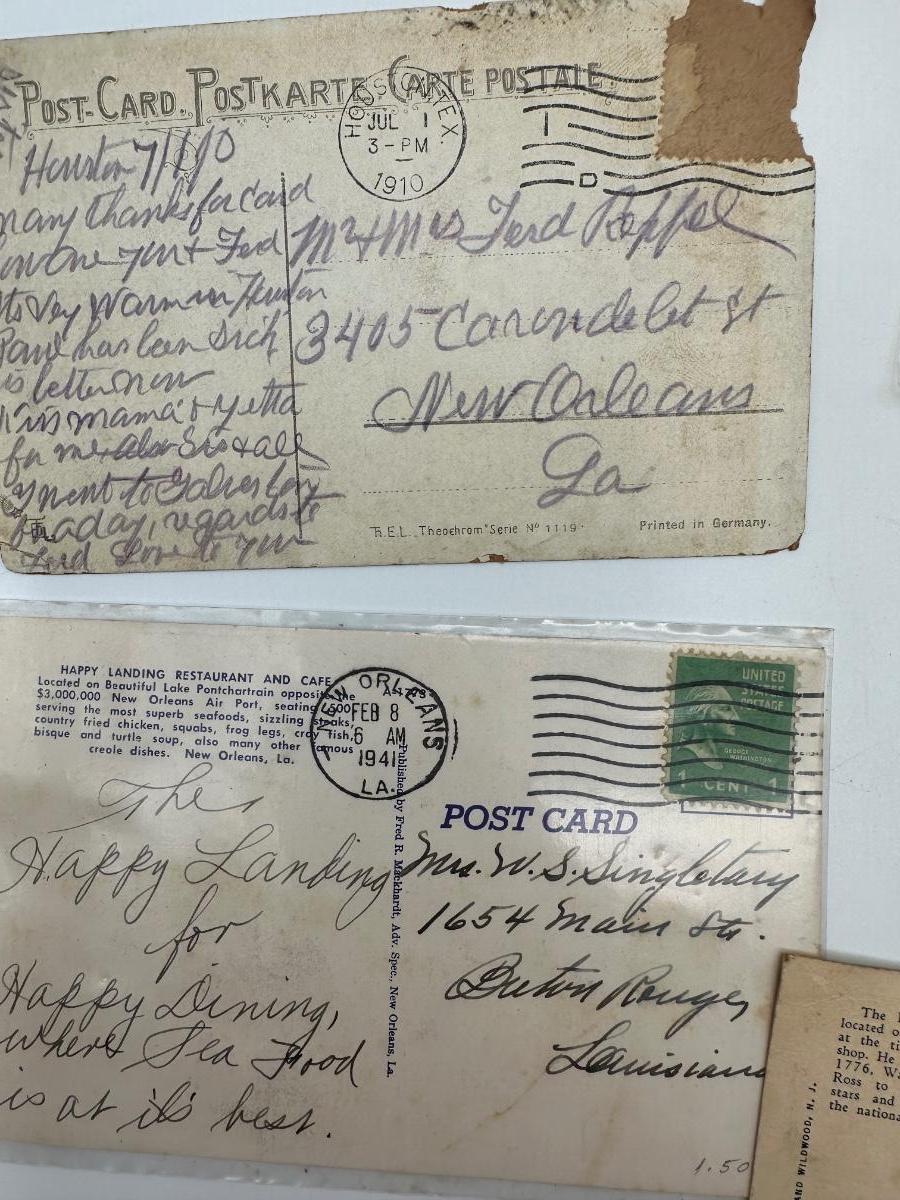 POST-CARD. POSTKARTE CARTE POSTALE.
HOUSTON, TEX.
JUL 1
3-PM
1910
1
D
Houston 7/1/10
many thanks for Card
Warm in Houston
has been Sick
is better now
mama & yetta
for me also Sis & all
went to Galveston
for a day, regards to
Ferd Love to
Mr & Mrs Ferd
3405 Carondelet St
New Orleans
La
T.R.E.L. „Theochrom" Serie Nº 1119
Printed in Germany.
HAPPY LANDING RESTAURANT AND CAFE
Located on Beautiful Lake Pontchartrain opposite the
$3,000.000 New Orleans Air Port, seating
serving the most superb seafoods, sizzling steaks,
country fried chicken, squabs, frog legs, cray fish,
bisque and turtle soup, also many other famous
creole dishes. New Orleans, La.
NEW ORLEANS
FEB 8
6 AM
1941
LA.
UNITED
STATES
POSTAGE
GEORGE
WASHINGTON
1 CENT 1
POST CARD
Published by Fred R. Mackhardt, Adv. Spec., New Orleans, La.
The
Happy Landing
for
Happy Dining,
where Sea Food
is at it's best.
Mrs. W. S. Singletary
1654 Main Str.
Buton Rouge,
Louisiana
1.50
The
located o
at the ti
shop. He
1776, Wa
Ross to
stars and
the nationa
AND WILDWOOD, N. J.